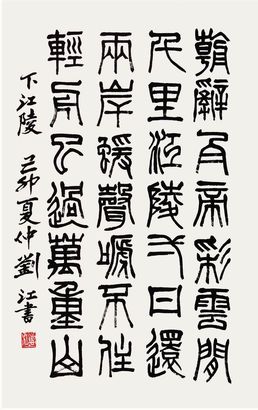 朝辭白帝彩雲間
千里江陵一日還
兩岸蝯聲嗁不住
輕舟已過萬重山
下江陵 己卯夏仲劉江書